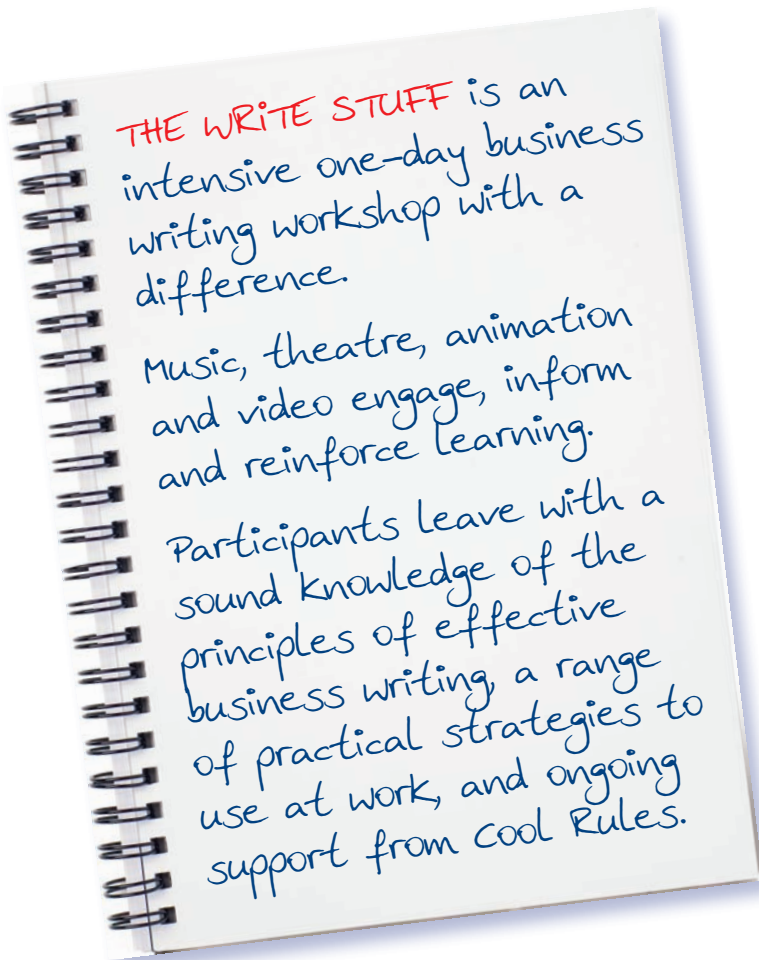 THE WRiTE STUFF is an
intensive one-day business
writing workshop with a
difference.
Music, theatre, animation
and video engage, inform
and reinforce learning.
Participants leave with a
sound knowledge of the
principles of effective
business writing, a range
of practical strategies to
use at work, and ongoing
support from Cool Rules.